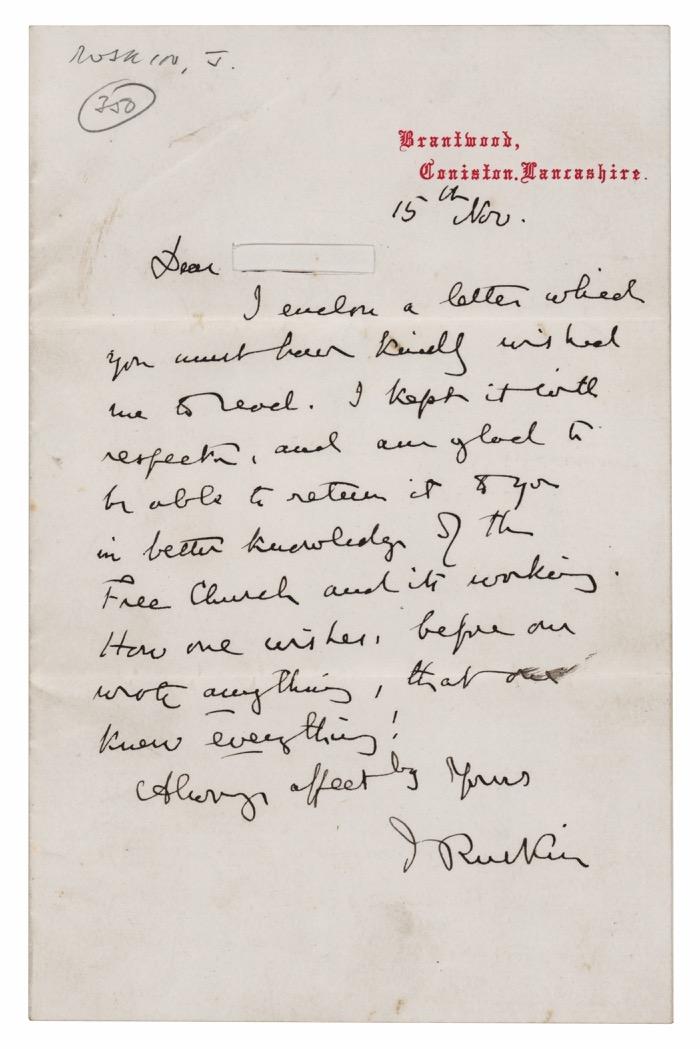 Ruskin, J.
350
Brantwood,
Coniston. Lancashire.
15th Nov.
Dear
I enclose a letter which
you must have kindly wished
me to read. I kept it with
respect, and am glad to
be able to return it to you
in better knowledge of the
Free Church and its working.
How one wishes, before one
wrote anything, that one
knew everything!
Always affectly Yours
J Ruskin